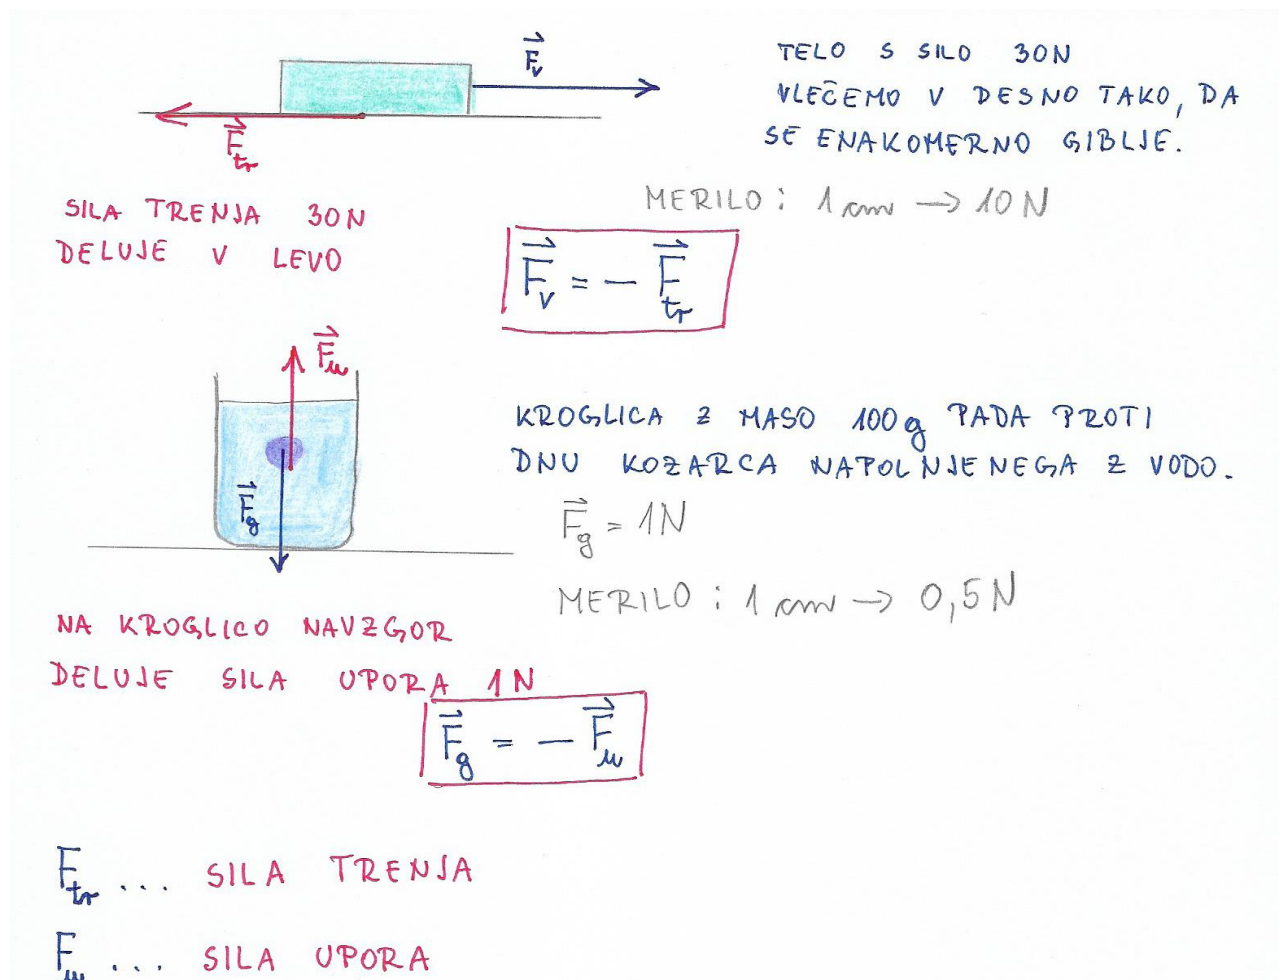 F⃗v
TELO S SILO 30N
VLEČEMO V DESNO TAKO, DA
SE ENAKOMERNO GIBLJE.
F⃗tr
SILA TRENJA 30N
DELUJE V LEVO
MERILO: 1 cm → 10 N
F⃗v = - F⃗tr
F⃗u
KROGLICA Z MASO 100g PADA PROTI
DNU KOZARCA NAPOLNJENEGA Z VODO.
F⃗g
F⃗g = 1N
MERILO: 1 cm → 0,5N
NA KROGLICO NAVZGOR
DELUJE SILA UPORA 1N
F⃗g = - F⃗u
Ftr ... SILA TRENJA
Fu ... SILA UPORA